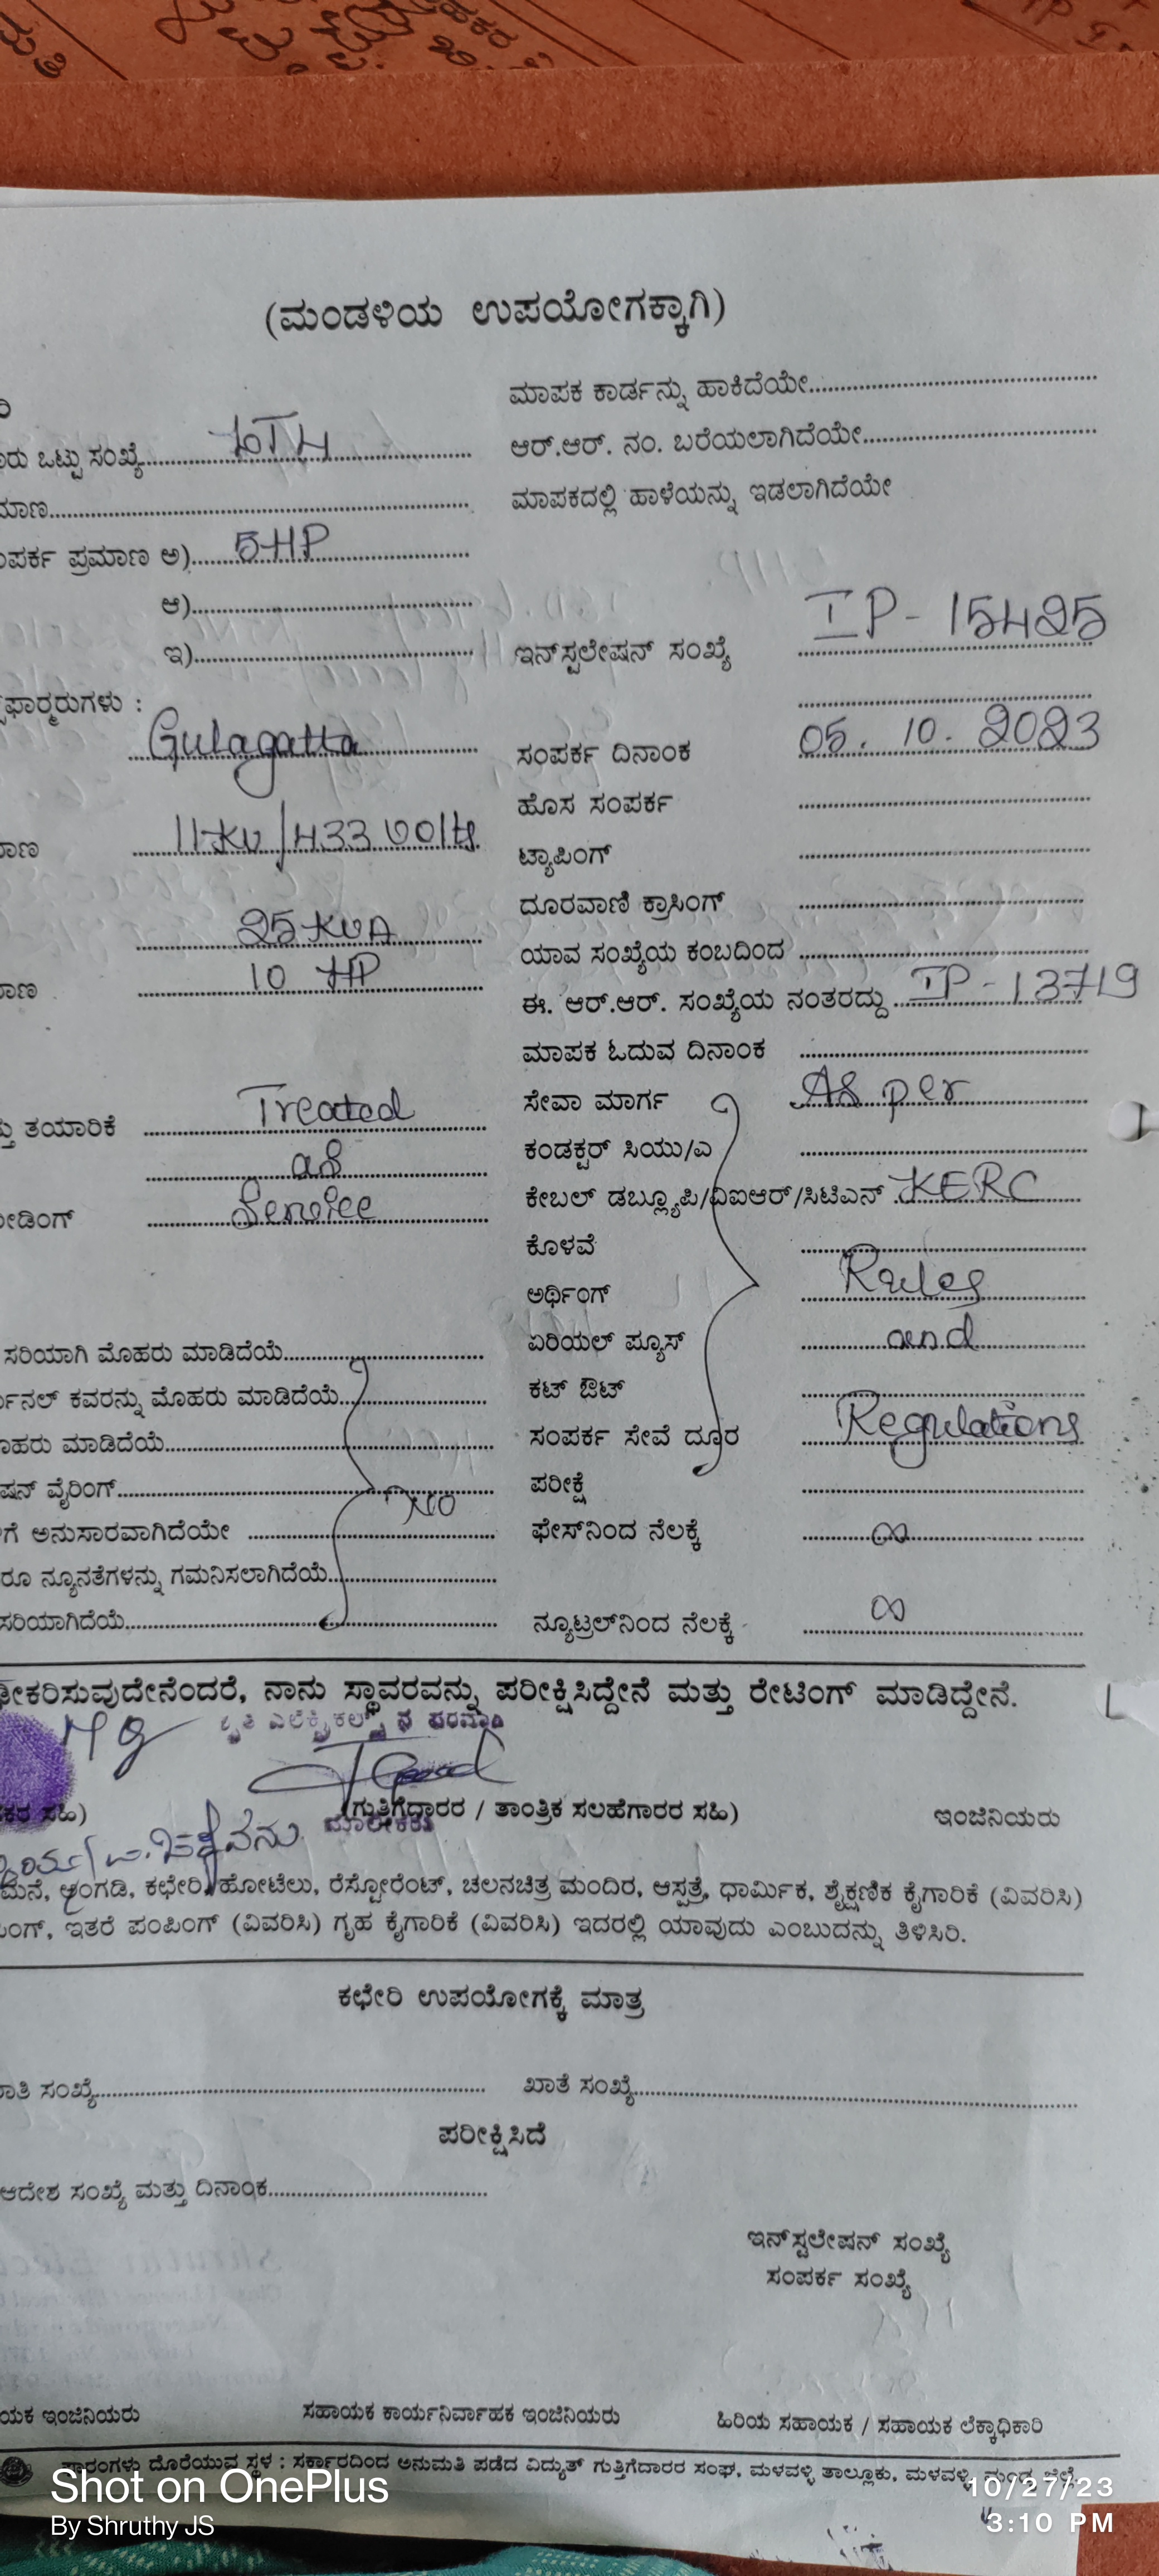 (ಮಂಡಳಿಯ ಉಪಯೋಗಕ್ಕಾಗಿ)
ಮಾಪಕ ಕಾರ್ಡನ್ನು ಹಾಕಿದೆಯೇ
ಒಟ್ಟು ಸಂಖ್ಯೆ
ಆರ್.ಆರ್. ನಂ. ಬರೆಯಲಾಗಿದೆಯೇ
ಮಾಪಕದಲ್ಲಿ ಹಾಳೆಯನ್ನು ಇಡಲಾಗಿದೆಯೇ
ಪ್ರಮಾಣ ಅ) 5HP
ಆ)
ಇ)
ಇನ್‌ಸ್ಟಲೇಷನ್ ಸಂಖ್ಯೆ IP-15425
Gulagatta
ಸಂಪರ್ಕ ದಿನಾಂಕ 05.10.2023
ಹೊಸ ಸಂಪರ್ಕ
11KV/433 Volts
ಟ್ಯಾಪಿಂಗ್
ದೂರವಾಣಿ ಕ್ರಾಸಿಂಗ್
25 KVA
ಯಾವ ಸಂಖ್ಯೆಯ ಕಂಬದಿಂದ
10 HP
ಈ. ಆರ್.ಆರ್. ಸಂಖ್ಯೆಯ ನಂತರದ್ದು IP-13719
ಮಾಪಕ ಓದುವ ದಿನಾಂಕ
ತಯಾರಿಕೆ Treated
ಸೇವಾ ಮಾರ್ಗ As per
as
ಕಂಡಕ್ಟರ್ ಸಿಯು/ಎ
Service
ಕೇಬಲ್ ಡಬ್ಲ್ಯೂಪಿ/ವಿಐಆರ್/ಸಿಟಿಎಸ್ KERC
ಕೊಳವೆ
ಅರ್ಥಿಂಗ್ Rules
ಸರಿಯಾಗಿ ಮೊಹರು ಮಾಡಿದೆಯೆ
ಏರಿಯಲ್ ಪ್ಯೂಸ್ and
ಕವರನ್ನು ಮೊಹರು ಮಾಡಿದೆಯೆ
ಕಟ್ ಔಟ್
ಮಾಡಿದೆಯೆ
ಸಂಪರ್ಕ ಸೇವೆ ದೂರ Regulations
ವೈರಿಂಗ್ No
ಪರೀಕ್ಷೆ
ಅನುಸಾರವಾಗಿದೆಯೇ
ಫೇಸ್‌ನಿಂದ ನೆಲಕ್ಕೆ ∞
ನ್ಯೂನತೆಗಳನ್ನು ಗಮನಿಸಲಾಗಿದೆಯೆ
ಸರಿಯಾಗಿದೆಯೆ
ನ್ಯೂಟ್ರಲ್‌ನಿಂದ ನೆಲಕ್ಕೆ ∞
ನಾನು ಸ್ಥಾವರವನ್ನು ಪರೀಕ್ಷಿಸಿದ್ದೇನೆ ಮತ್ತು ರೇಟಿಂಗ್ ಮಾಡಿದ್ದೇನೆ.
(ಗುತ್ತಿಗೆದಾರರ / ತಾಂತ್ರಿಕ ಸಲಹೆಗಾರರ ಸಹಿ)
ಇಂಜಿನಿಯರು
ಮನೆ, ಅಂಗಡಿ, ಕಛೇರಿ, ಹೋಟೆಲು, ರೆಸ್ಟೋರೆಂಟ್, ಚಲನಚಿತ್ರ ಮಂದಿರ, ಆಸ್ಪತ್ರೆ, ಧಾರ್ಮಿಕ, ಶೈಕ್ಷಣಿಕ ಕೈಗಾರಿಕೆ (ವಿವರಿಸಿ)
ಇತರೆ ಪಂಪಿಂಗ್ (ವಿವರಿಸಿ) ಗೃಹ ಕೈಗಾರಿಕೆ (ವಿವರಿಸಿ) ಇದರಲ್ಲಿ ಯಾವುದು ಎಂಬುದನ್ನು ತಿಳಿಸಿರಿ.
ಕಛೇರಿ ಉಪಯೋಗಕ್ಕೆ ಮಾತ್ರ
ಸಂಖ್ಯೆ
ಖಾತೆ ಸಂಖ್ಯೆ
ಪರೀಕ್ಷಿಸಿದೆ
ಆದೇಶ ಸಂಖ್ಯೆ ಮತ್ತು ದಿನಾಂಕ
ಇನ್‌ಸ್ಟಲೇಷನ್ ಸಂಖ್ಯೆ
ಸಂಪರ್ಕ ಸಂಖ್ಯೆ
ಇಂಜಿನಿಯರು
ಸಹಾಯಕ ಕಾರ್ಯನಿರ್ವಾಹಕ ಇಂಜಿನಿಯರು
ಹಿರಿಯ ಸಹಾಯಕ / ಸಹಾಯಕ ಲೆಕ್ಕಾಧಿಕಾರಿ
ದೊರೆಯುವ ಸ್ಥಳ : ಸರ್ಕಾರದಿಂದ ಅನುಮತಿ ಪಡೆದ ವಿದ್ಯುತ್ ಗುತ್ತಿಗೆದಾರರ ಸಂಘ, ಮಳವಳ್ಳಿ ತಾಲ್ಲೂಕು, ಮಳವಳ್ಳಿ, ಮಂಡ್ಯ ಜಿಲ್ಲೆ.
Shot on OnePlus
By Shruthy JS
10/27/23
3:10 PM